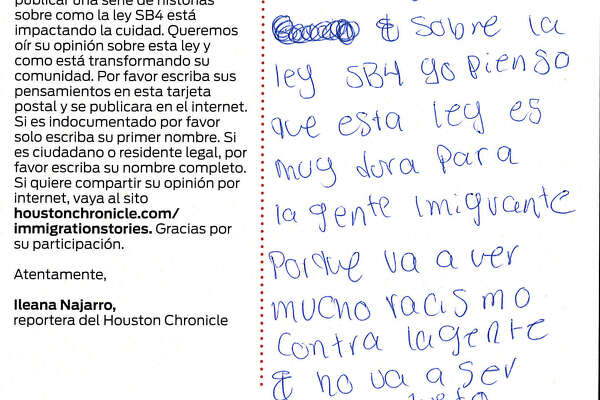 publicar una serie de historias
sobre como la ley SB4 está
impactando la cuidad. Queremos
oír su opinión sobre esta ley y
como está transformando su
comunidad. Por favor escriba sus
pensamientos en esta tarjeta
postal y se publicara en el internet.
Si es indocumentado por favor
solo escriba su primer nombre. Si
es ciudadano o residente legal, por
favor escriba su nombre completo.
Si quiere compartir su opinión por
internet, vaya al sito
houstonchronicle.com/
immigrationstories. Gracias por
su participación.
Atentamente,
Ileana Najarro,
reportera del Houston Chronicle
sobre la
ley SB4 yo pienso
que esta ley es
muy dura para
la gente imigrante
Porque va a ver
mucho racismo
contra la gente
no va a ser